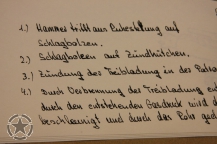 1.) Hammer trifft aus Ruhestellung auf
Schlagbolzen.
2.) Schlagbolzen auf Zündhütchen.
3.) Zündung der Treibladung in der
4.) Durch Verbrennung der Treibladung
durch den entstehenden Gasdruck wird d
beschleunigt und durch das Rohr ged